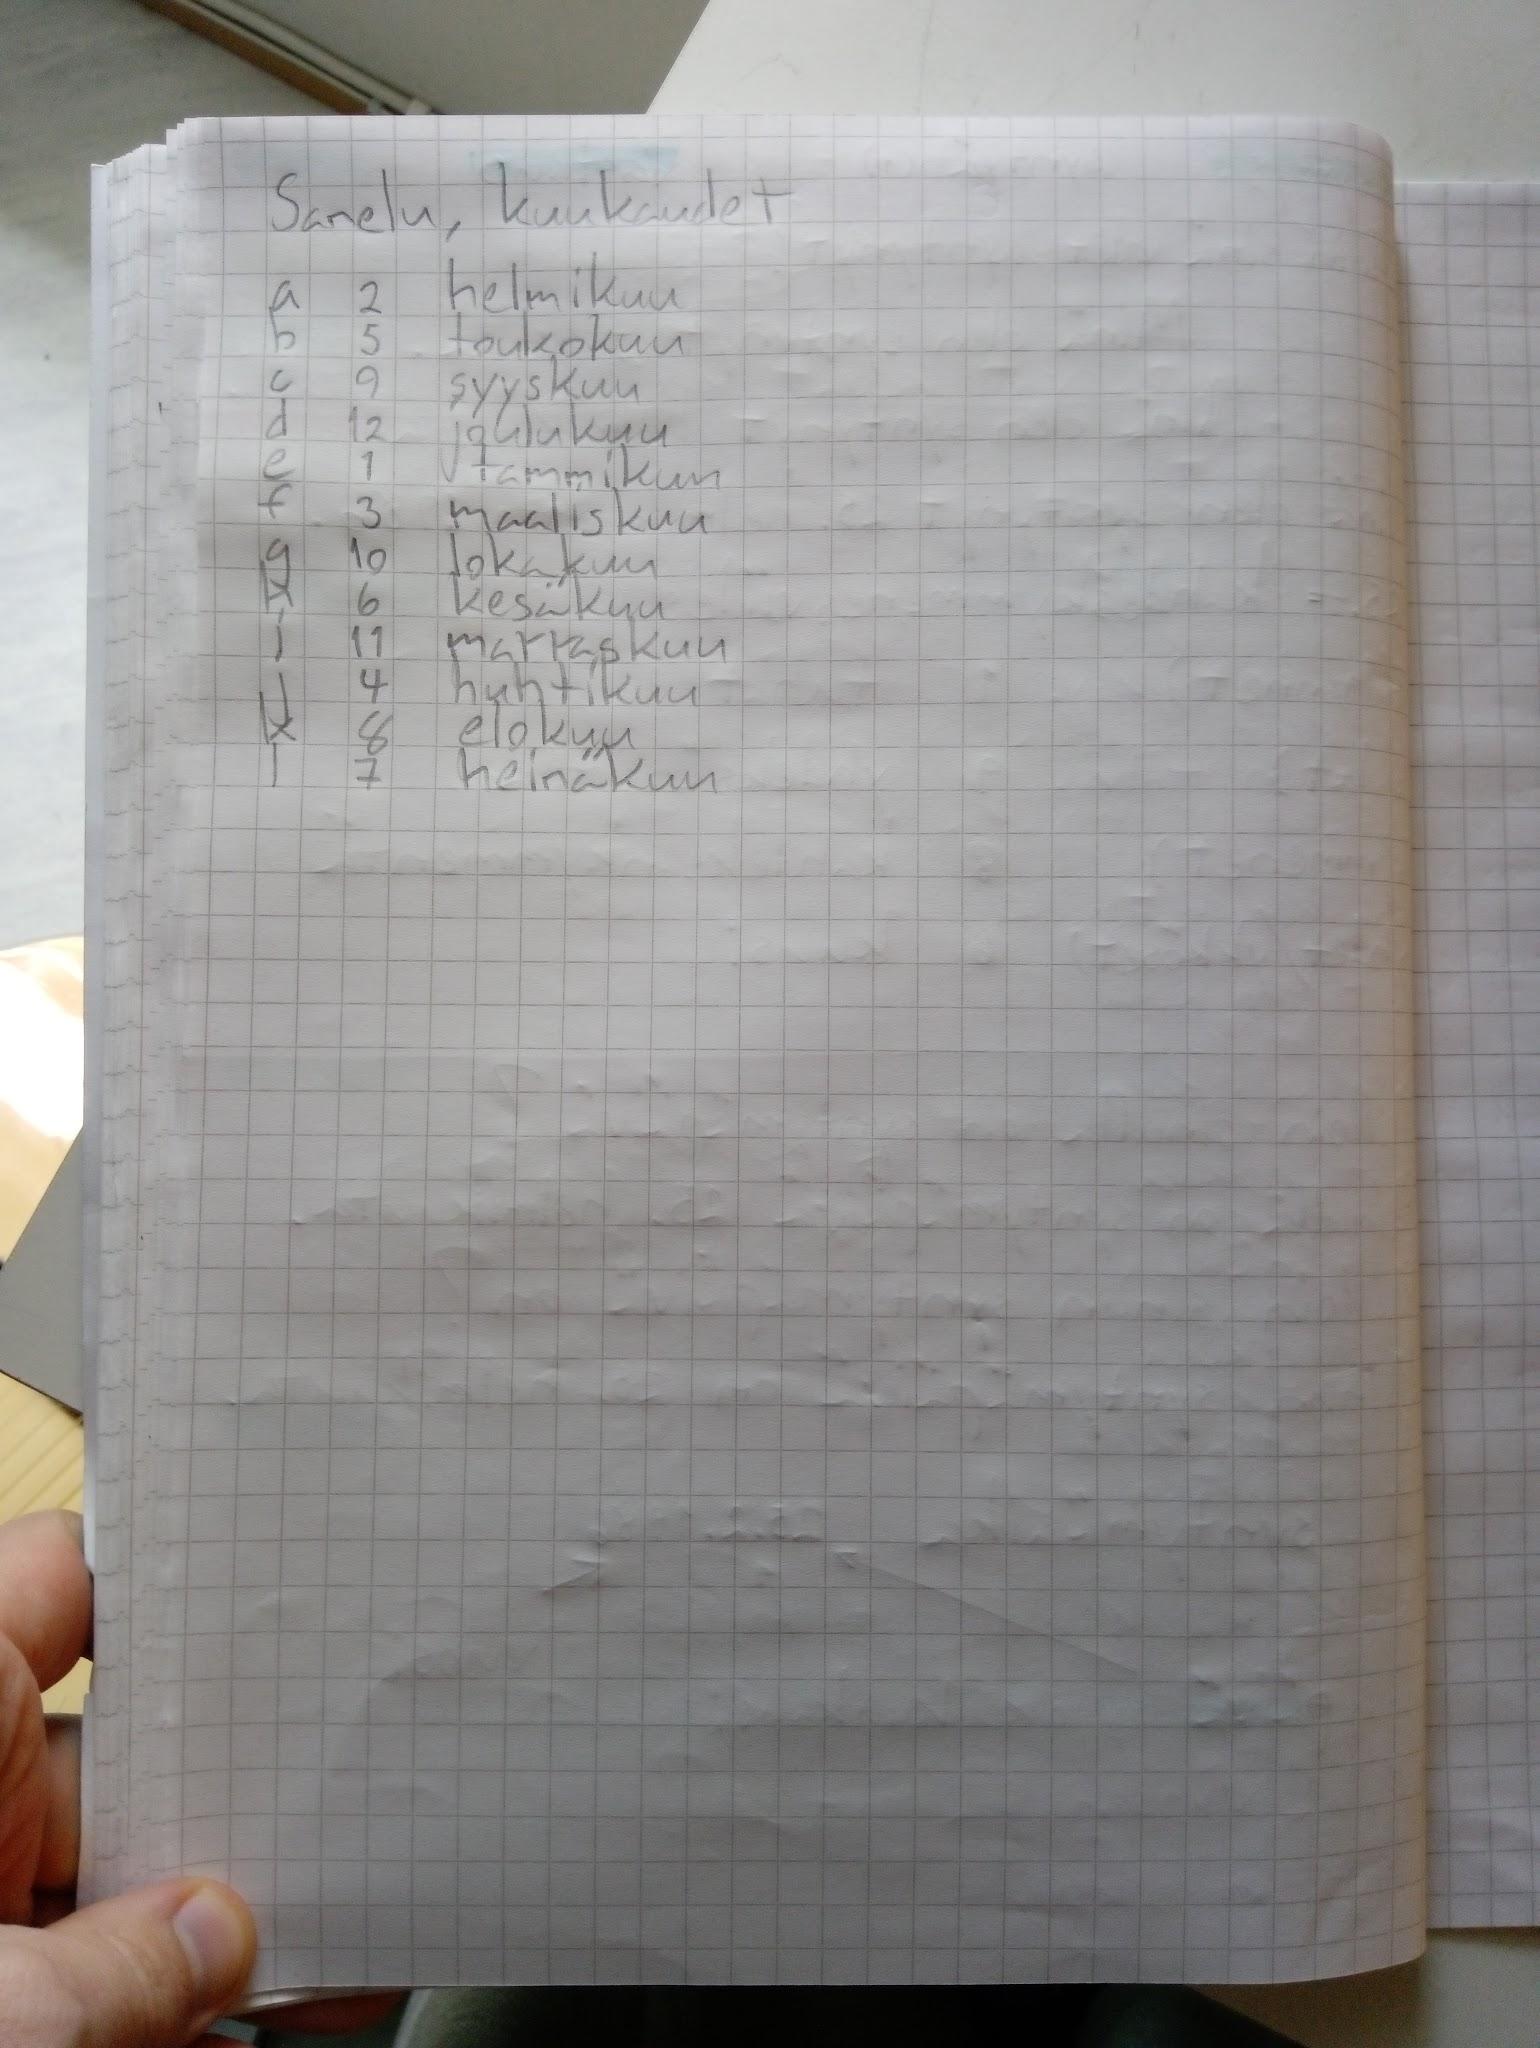 Sanelu, kuukaudet
a 2 helmikuu
b 5 toukokuu
c 9 syyskuu
d 12 joulukuu
e 1 tammikuu
f 3 maaliskuu
g 10 lokakuu
h 6 kesäkuu
i 11 marraskuu
j 4 huhtikuu
k 8 elokuu
l 7 heinäkuu